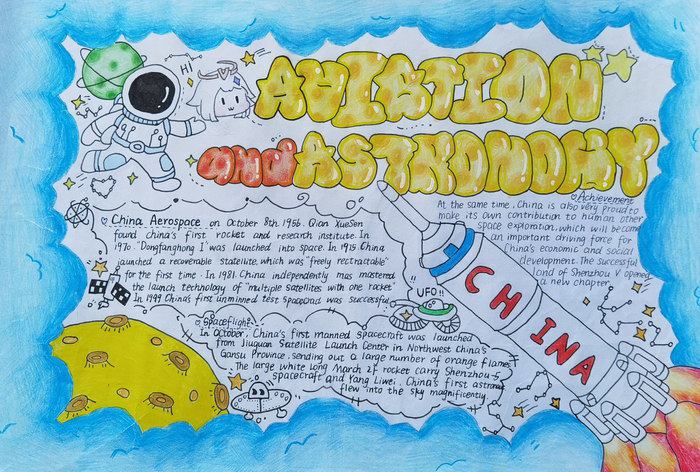 HI
AVIATION
and ASTRONOMY
China Aerospace on October 8th 1956. Qian XueSen
found china's first rocket and research institute. In
1970. "Dongfanghong I" was launched into space. In 1975 China
launched a recoverable statellite, which was "freely rectractable"
for the first time. In 1981. China independently mas mastered
the launch technology of "multiple satellites with one rocket"
In 1999 China's first unminned test was successful.
Achievement
At the same time, China is also very proud to
make its own contribution to human other
space exploration, which will become
an important driving force for
China's economic and social
development. The successful
land of Shenzhou V opened
a new chapter.
CHINA
UFO!!
Spaceflight
In October, China's first manned spacecraft was launched
from Jiuquan Satellite Launch Center in Northwest China's
Gansu Province, sending out a large number of orange flames
The large white long March 2F rocket carry Shenzhou-5
spacecraft and Yang Liwei. China's first astronat
flew into the sky magnificently.